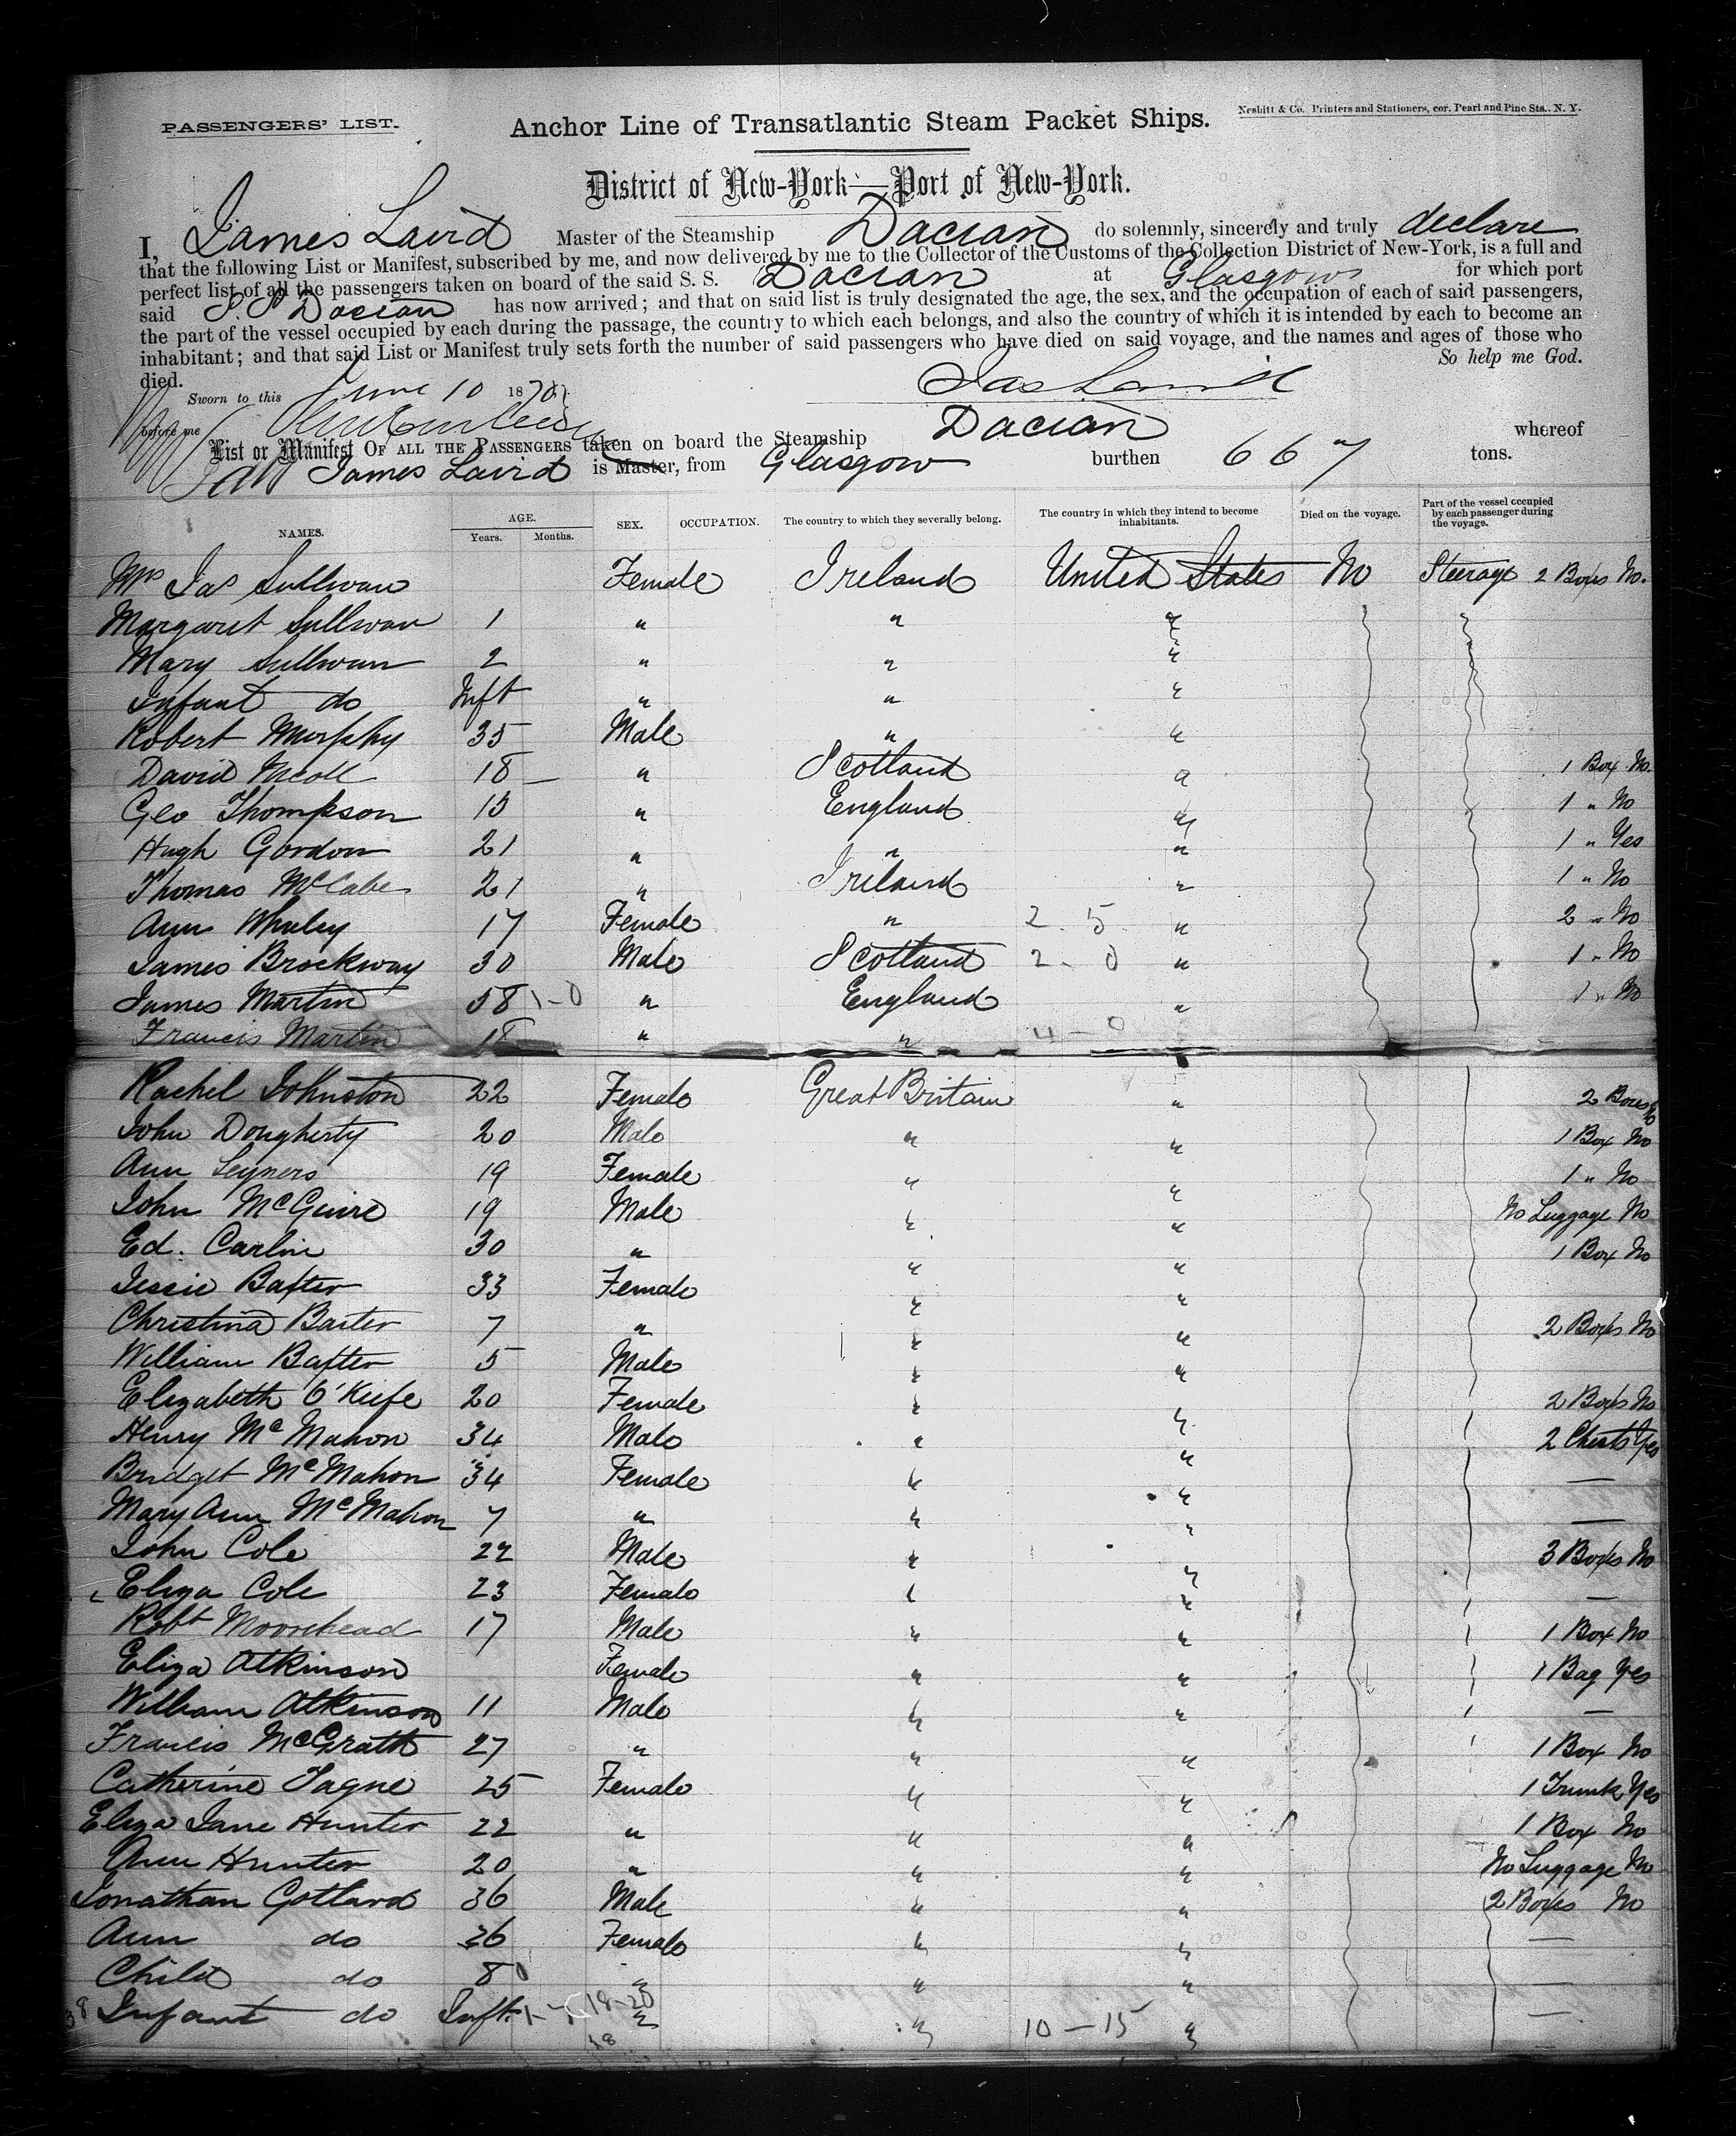 PASSENGERS' LIST.
Anchor Line of Transatlantic Steam Packet Ships.
Nesbitt & Co. Printers and Stationers, cor. Pearl and Pine Sts., N. Y.
District of New-York—Port of New-York.
I, James Laird Master of the Steamship Dacian do solemnly, sincerely and truly declare
that the following List or Manifest, subscribed by me, and now delivered by me to the Collector of the Customs of the Collection District of New-York, is a full and
perfect list of all the passengers taken on board of the said S. S. Dacian at Glasgow for which port
said S.S. Dacian has now arrived; and that on said list is truly designated the age, the sex, and the occupation of each of said passengers,
the part of the vessel occupied by each during the passage, the country to which each belongs, and also the country of which it is intended by each to become an
inhabitant; and that said List or Manifest truly sets forth the number of said passengers who have died on said voyage, and the names and ages of those who
died. So help me God.
Sworn to this June 10 1870 Jas Laird
before me
List or Manifest OF ALL THE PASSENGERS taken on board the Steamship Dacian whereof
James Laird is Master, from Glasgow burthen 667 tons.
NAMES. AGE. Years. Months. SEX. OCCUPATION. The country to which they severally belong. The country in which they intend to become inhabitants. Died on the voyage. Part of the vessel occupied by each passenger during the voyage.
Mrs Jas Sullivan Female Ireland United States No Steerage 2 Boxes No.
Margaret Sullivan 1 " " "
Mary Sullivan 2 " " "
Infant do Inft " " "
Robert Murphy 35 Male " "
David Nicoll 18 " Scotland " 1 Box No.
Geo Thompson 15 " England " 1 " No
Hugh Gordon 21 " " " 1 " Yes
Thomas McCabe 21 " Ireland " 1 " No
Ann Whaley 17 Female " 2 5 " 2 " No
James Brockway 30 Male Scotland 2 - 0 " 1 " No
James Martin 58 1-0 " England " 1 " No
Francis Martin 18 " " 4 - 0
Rachel Johnston 22 Female Great Britain " 2 Boxes No
John Dougherty 20 Male " " 1 Box No
Ann 19 Female " " 1 " No
John McGuire 19 Male " " No Luggage No
Ed. Carlin 30 " " " 1 Box No
Jessie Baxter 33 Female " "
Christina Baxter 7 " " " 2 Boxes No
William Baxter 5 Male " "
Elizabeth O'Keefe 20 Female " " 2 Boxes No
Henry McMahon 34 Male " " 2 Chests Yes
Bridget McMahon 34 Female " " —
Mary Ann McMahon 7 " " " —
John Cole 22 Male " " 3 Boxes No
Eliza Cole 23 Female " " —
Robt Moorehead 17 Male " " 1 Box No
Eliza Atkinson Female " " 1 Bag Yes
William Atkinson 11 Male " " —
Francis McGrath 27 " " " 1 Box No
Catherine Tagne 25 Female " " 1 Trunk Yes
Eliza Jane Hunter 22 " " " 1 Box No
Ann Hunter 20 " " " No Luggage No
Jonathan Gotlard 36 Male " " 2 Boxes No
Ann do 36 Female " " —
Child do 8 " " " —
38 Infant do Inft. " " 10 - 15 " —